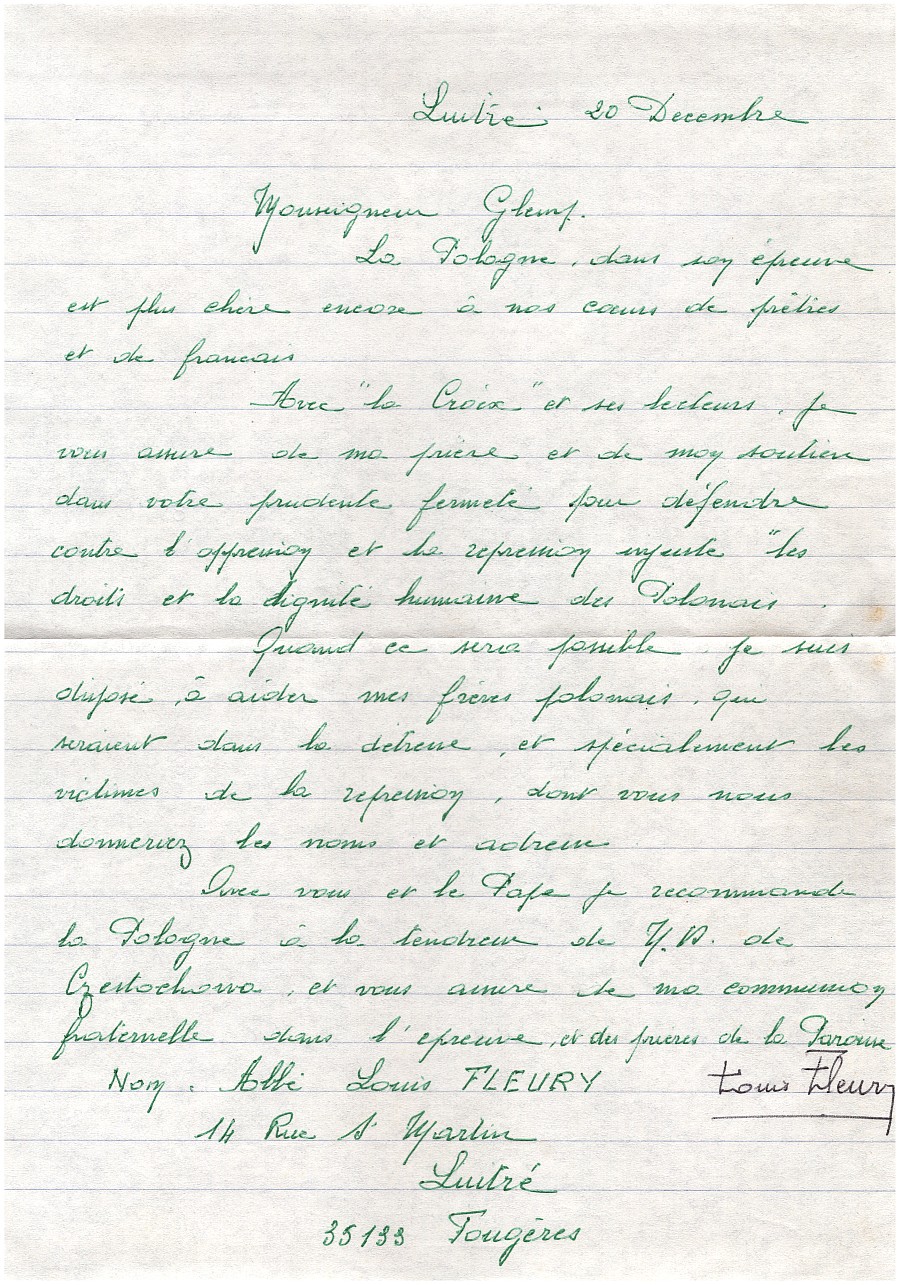 Luitré 20 Decembre
Monseigneur Glemp.
La Pologne, dans son épreuve
est plus chère encore à nos cœurs de prêtres
et de francais
Avec "la Croix" et ses lecteurs, je
vous assure de ma prière et de mon soutien
dans votre prudente fermeté pour défendre
contre l'oppression et la repression injuste "les
droits et la dignité humaine des Polonais.
Quand ce sera possible, je suis
disposé, à aider mes frères polonais, qui
seraient dans la détresse, et spécialement les
victimes de la repression, dont vous nous
donneriez les noms et adresse
Avec vous et le Pape je recommande
la Pologne à la tendresse de N.D. de
Czestochowa, et vous assure de ma communion
fraternelle dans l'epreuve, et des prières de la Paroisse
Nom. Abbé Louis FLEURY Louis Fleury
14 Rue St Martin
Luitré
35133 Fougères